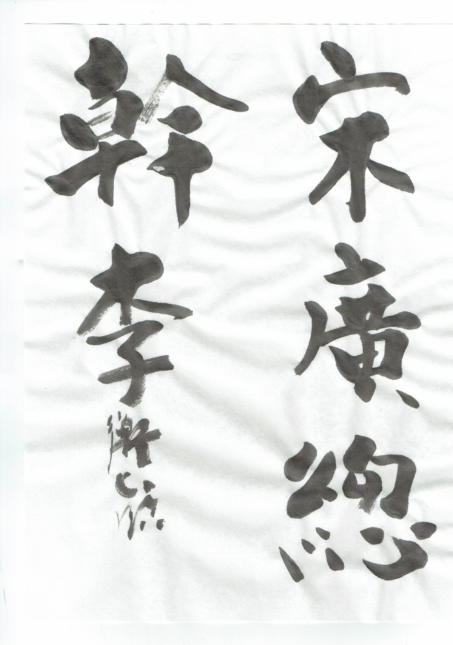 宋廣總
幹李